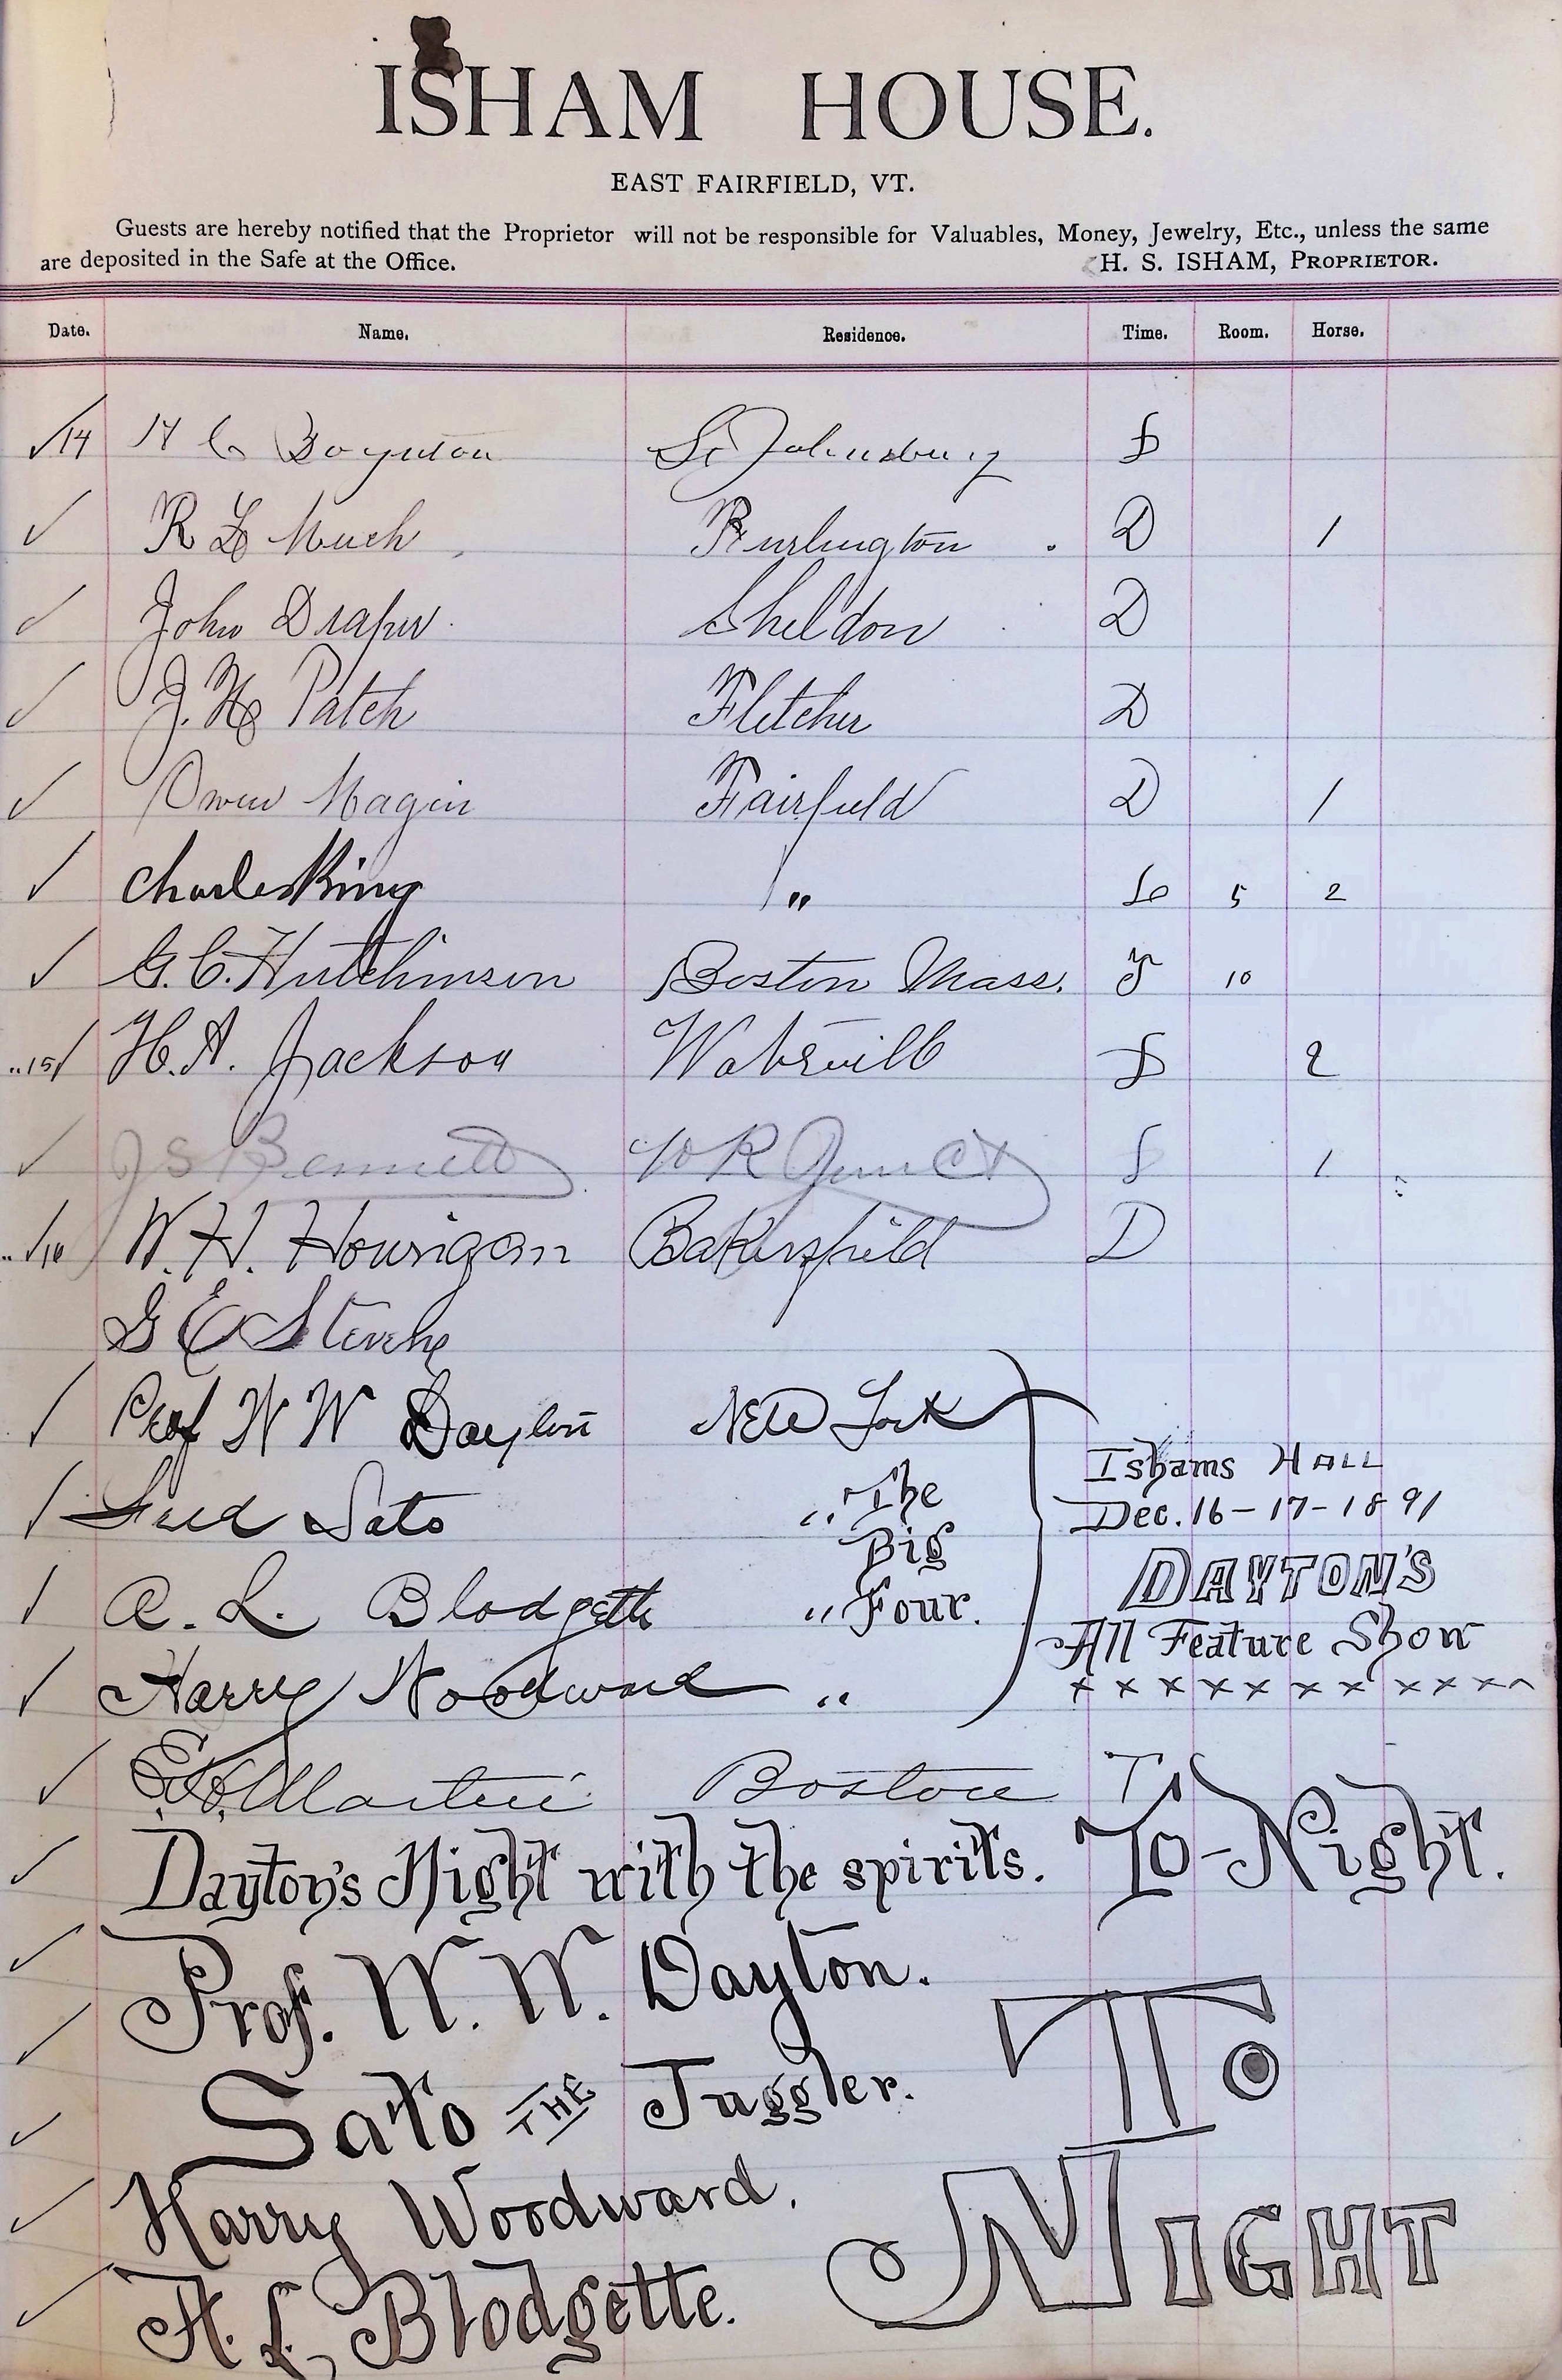 ISHAM HOUSE.
EAST FAIRFIELD, VT.
Guests are hereby notified that the Proprietor will not be responsible for Valuables, Money, Jewelry, Etc., unless the same
are deposited in the Safe at the Office. H. S. ISHAM, PROPRIETOR.
Date. Name. Residence. Time. Room. Horse.
✓14 H C Boynton St Johnsbury
✓ R L Much Burlington D 1
✓ John Draper Sheldon D
✓ J. H Patch Fletcher D
✓ Owen Magin Fairfield D 1
✓ Charles King " 5 2
✓ G. C. Hutchinson Boston Mass. 10
"15/ H. A. Jackson Waterville 2
✓ J S Bennett Junct 1
" ✓16 W. H. Hourigan Bakersfield D
G E Stevens
✓ Prof W W Dayton New York
Ishams HALL
✓ Fred Sato " The
Dec. 16-17-1891
Big
DAYTON'S
✓ A. L. Blodgette " Four.
All Feature Show
✓ Harry Woodward "
x x x x x x x x x x x x
✓ Martin Boston T
✓ Dayton's Night with the spirits. To-Night.
✓ Prof. W. W. Dayton.
✓ TO
✓ Sato THE Juggler.
✓ Harry Woodward.
NIGHT
✓ A. L. Blodgette.